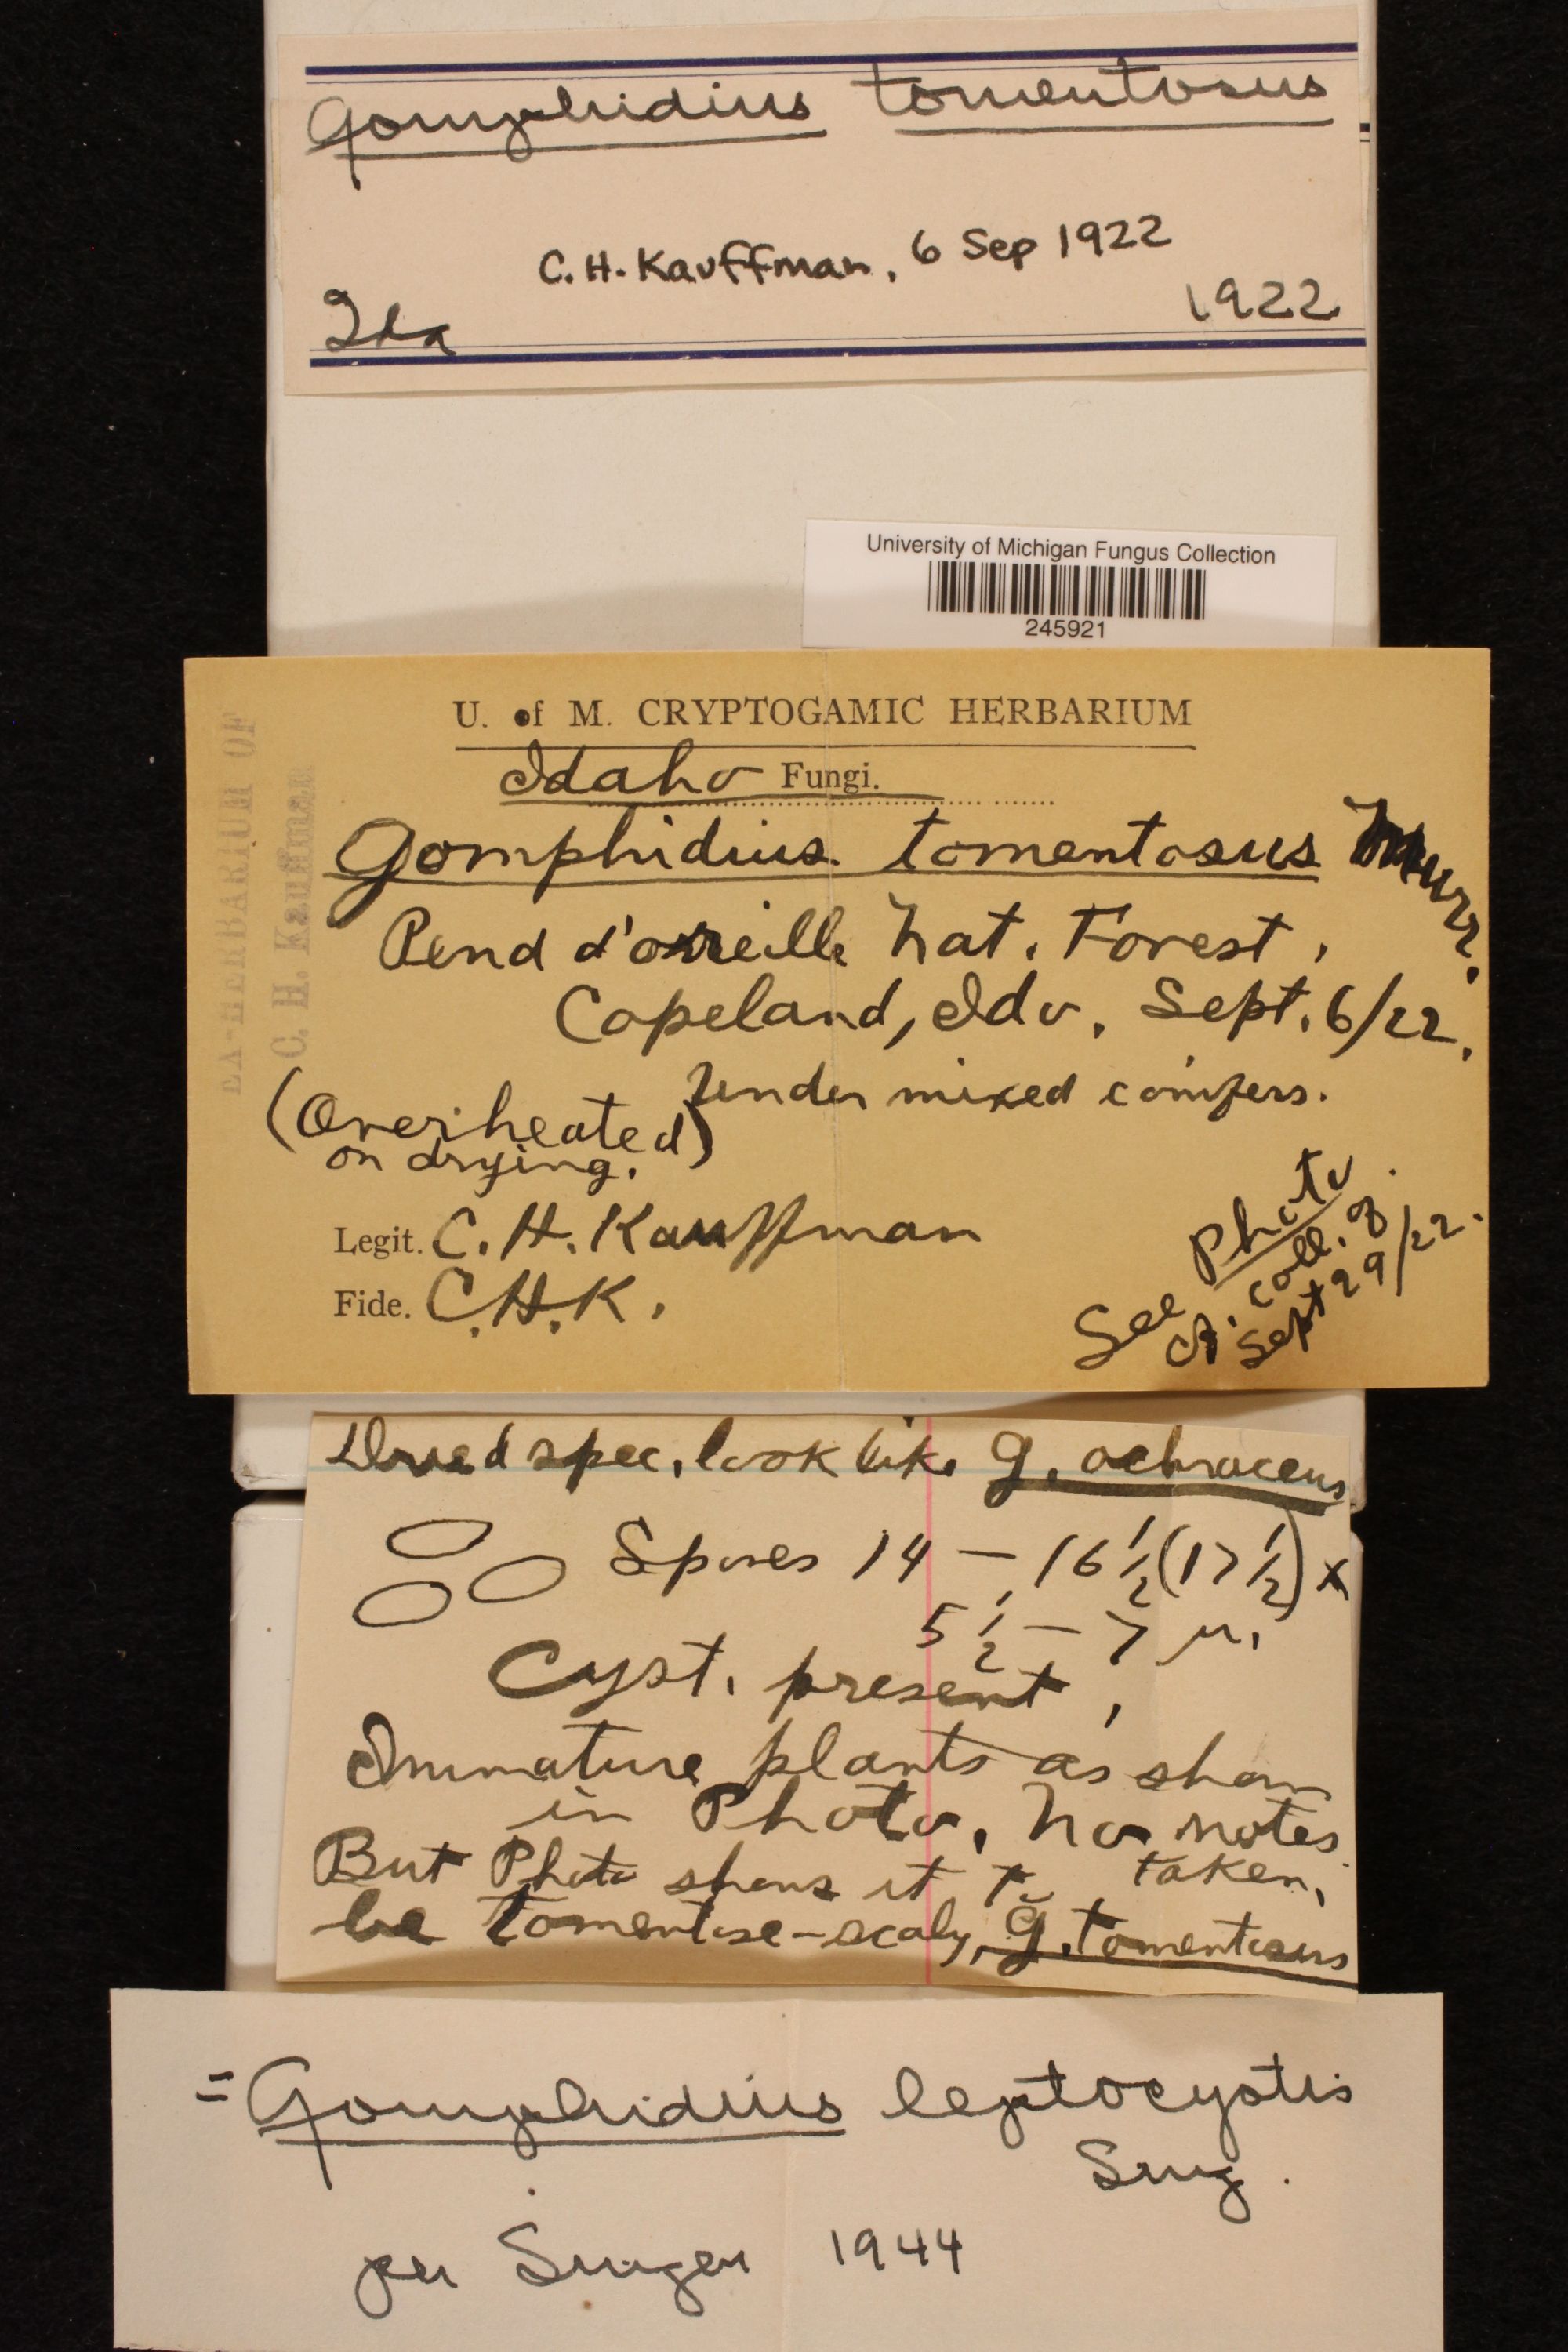 Gomphidius tomentosus
C.H. Kauffman, 6 Sep 1922
Ida 1922
University of Michigan Fungus Collection
245921
U. of M. CRYPTOGAMIC HERBARIUM
Idaho Fungi.
Gomphidius tomentosus Murr.
Pend d'oreille Nat. Forest,
Copeland, Ido. Sept. 6/22.
Under mixed conifers.
(Overheated)
on drying.
Legit. C. H. Kauffman
Fide. C.H.K.
See Photo
cf. coll. of
Sept 29/22.
EX-HERBARIUM OF
C. H. Kauffman
Dried spec. look like G. ochraceus
Spores 14 — 16 1/2 (17 1/2) x
5 1/2 — 7 µ.
Cyst. present,
Immature plants as shown
in Photo, No notes
taken,
But Photo shows it to
be tomentose-scaly, G. tomentosus
= Gomphidius leptocystis
Sing.
per Singer 1944